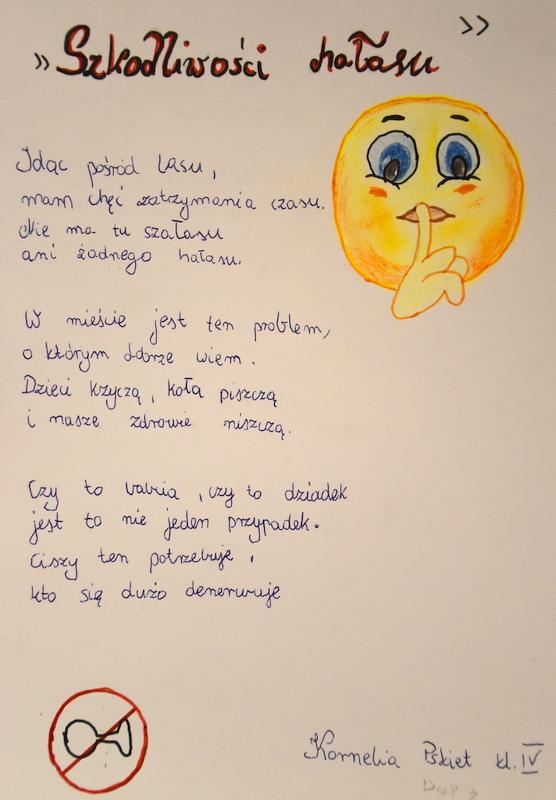 „Szkodliwości hałasu"
Idąc pośród lasu,
mam chęć zatrzymania czasu.
Nie ma tu szałasu
ani żadnego hałasu.
W mieście jest ten problem,
o którym dobrze wiem.
Dzieci krzyczą, koła piszczą
i nasze zdrowie niszczą.
Czy to babcia, czy to dziadek
jest to nie jeden przypadek.
Ciszy ten potrzebuje,
kto się dużo denerwuje
Kornelia kl. IV